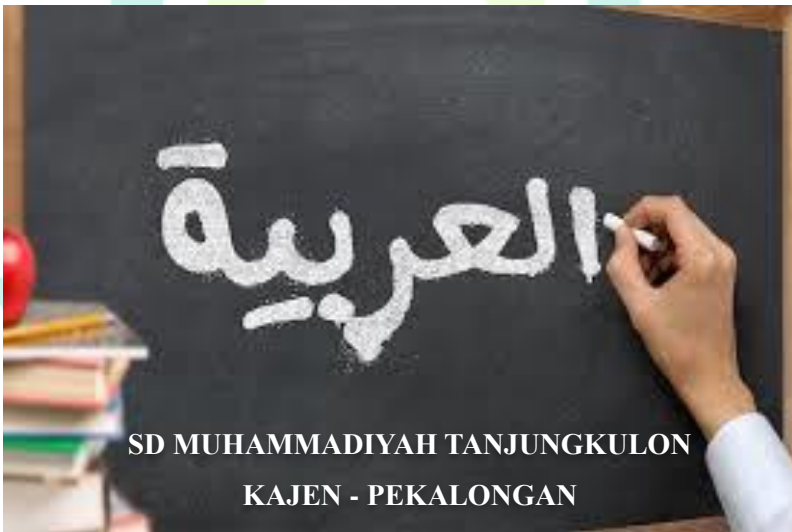 العربية
SD MUHAMMADIYAH TANJUNGKULON
KAJEN - PEKALONGAN